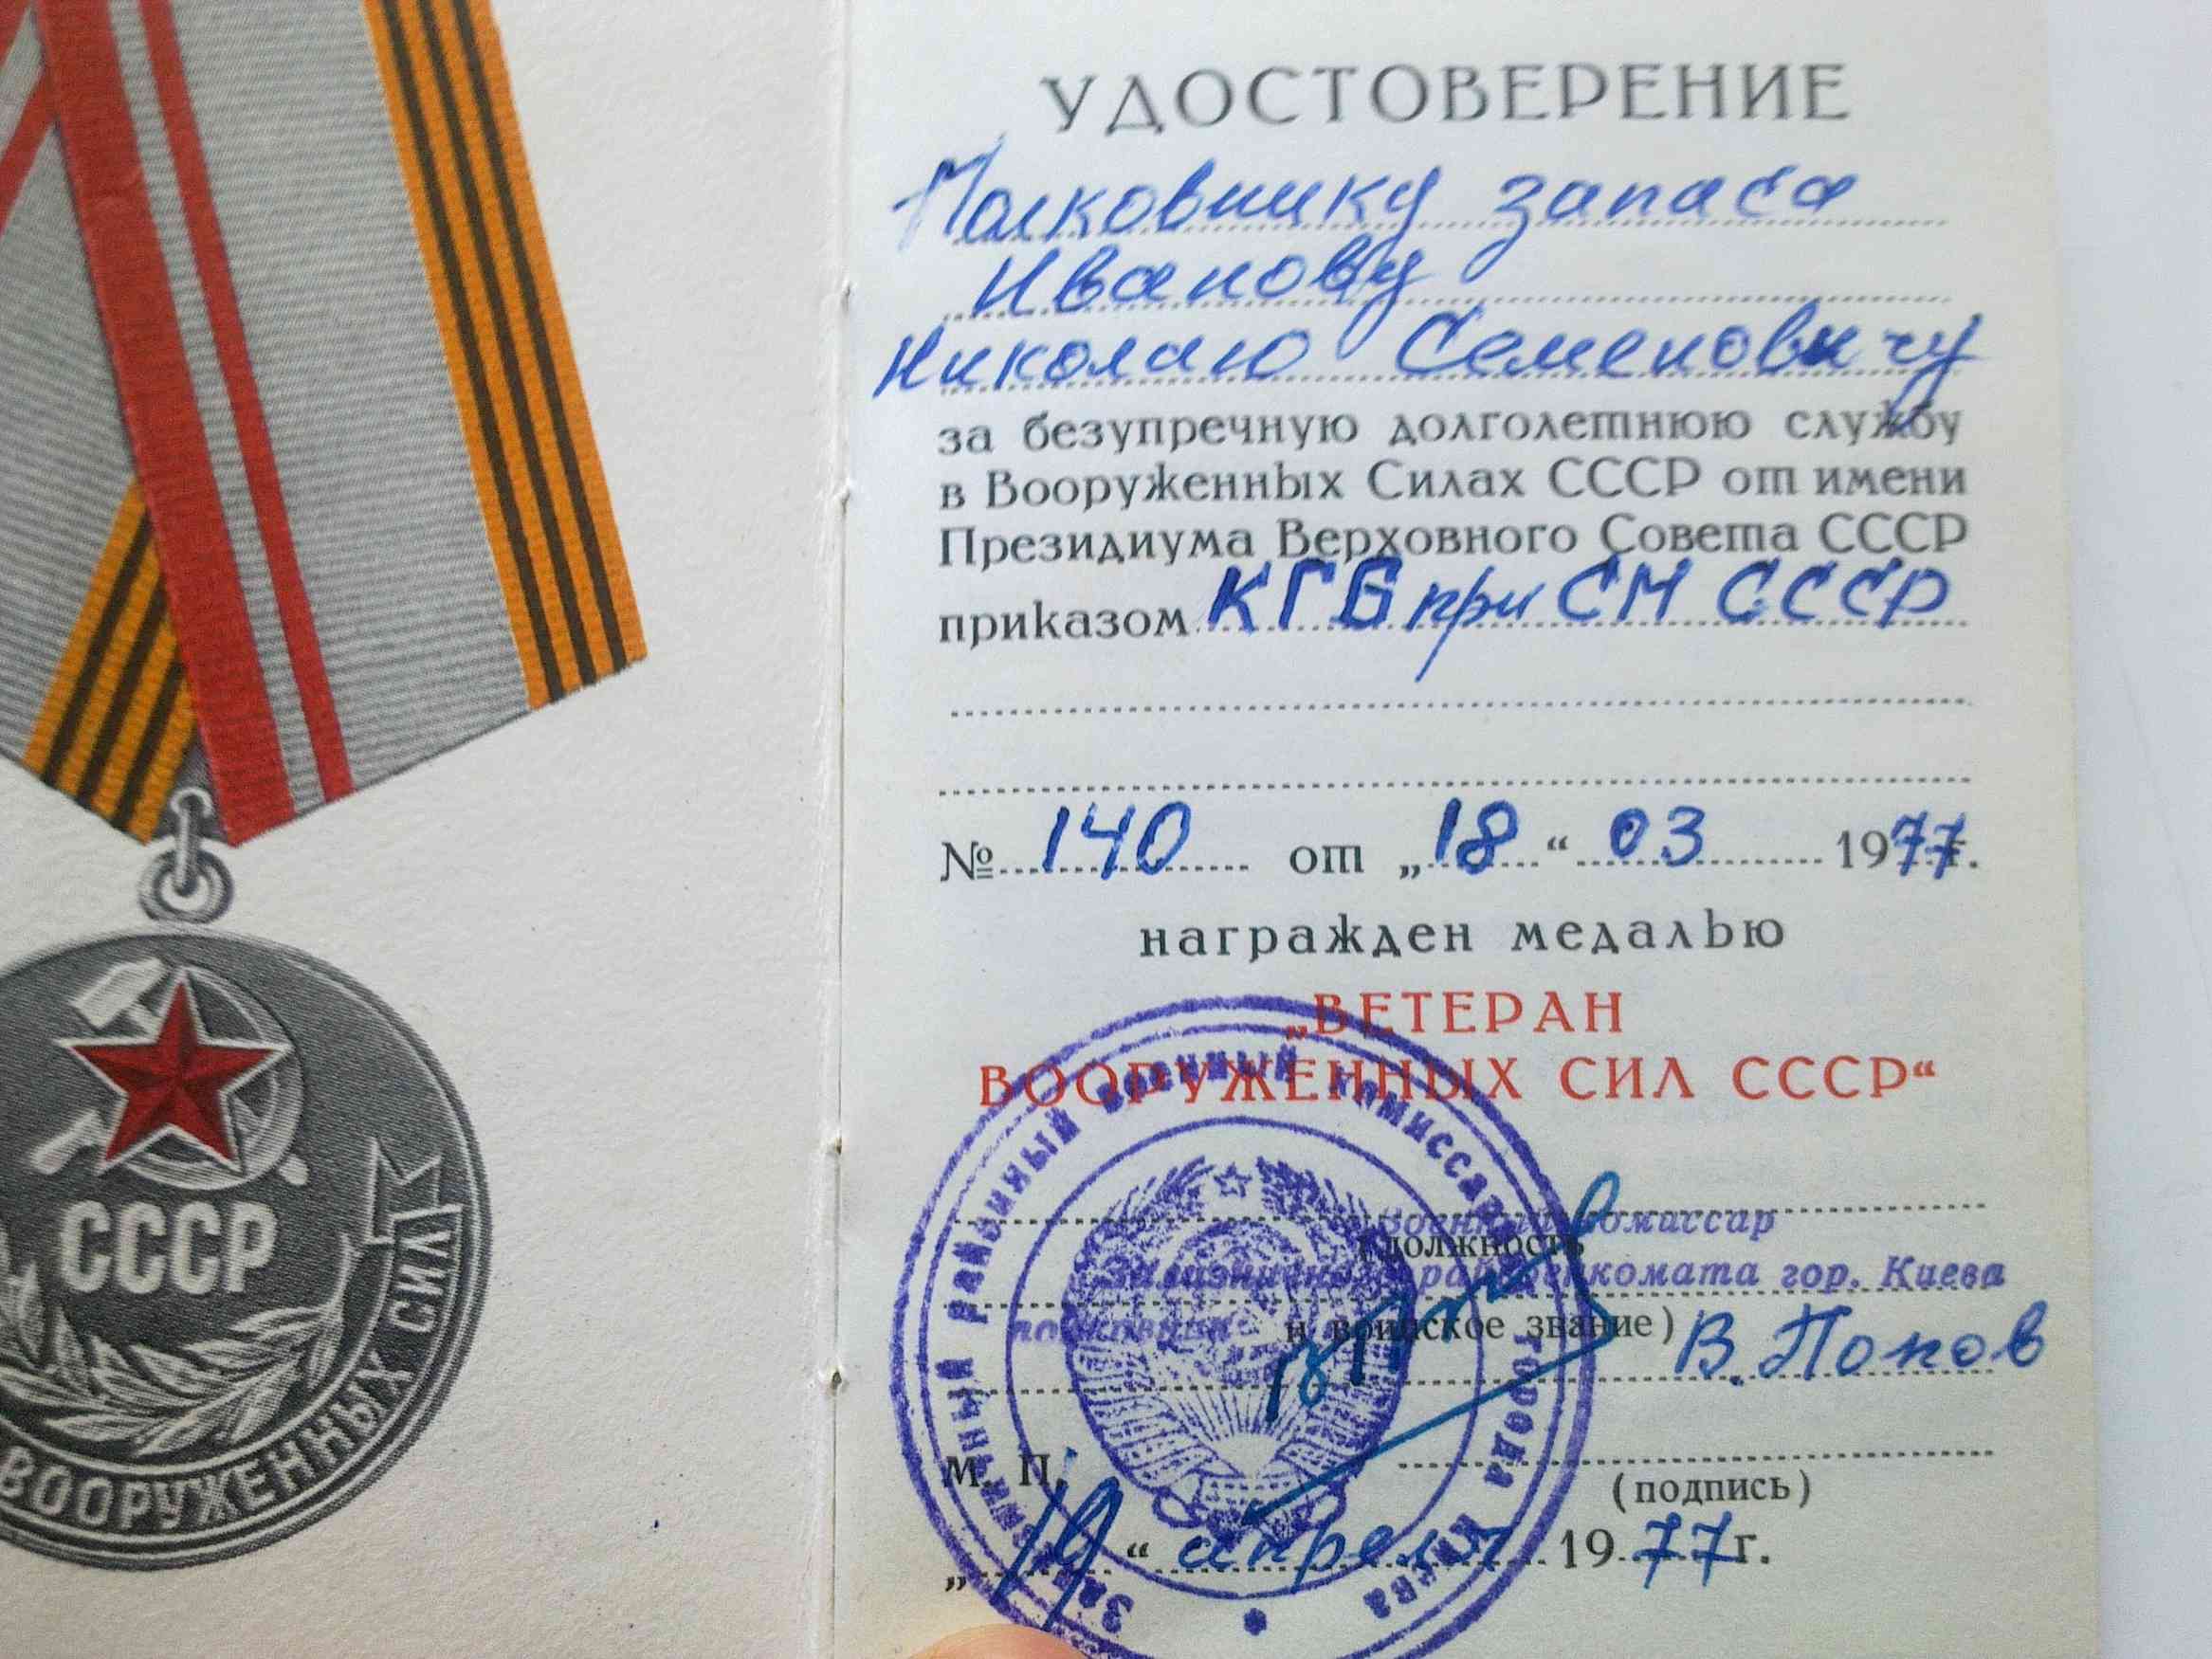 СССР
ВООРУЖЕННЫХ СИЛ
УДОСТОВЕРЕНИЕ
Полковнику запаса
Иванову
Николаю Семеновичу
за безупречную долголетнюю службу
в Вооруженных Силах СССР от имени
Президиума Верховного Совета СССР
приказом КГБ при СМ СССР
№ 140 от „18“ 03 1977г.
награжден медалью
„ВЕТЕРАН
ВООРУЖЕННЫХ СИЛ СССР“
Военный комассар
(должность
райвоенкомата гор. Киева
и воинское звание)
В. Попов
М. П.
(подпись)
„19“ апреля 1977г.
районный военный комиссар
города Киева